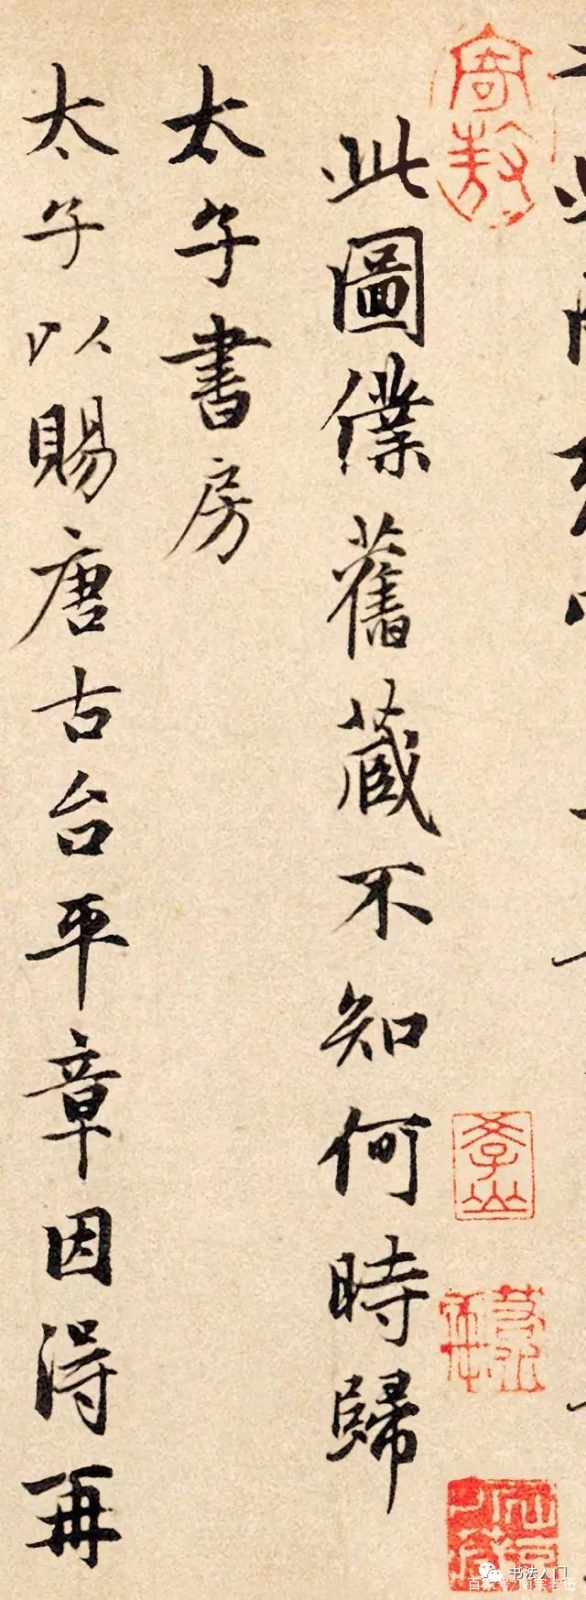 此圖僕舊藏不知何時歸
太子書房
太子以賜唐古台平章因得再
书法入门